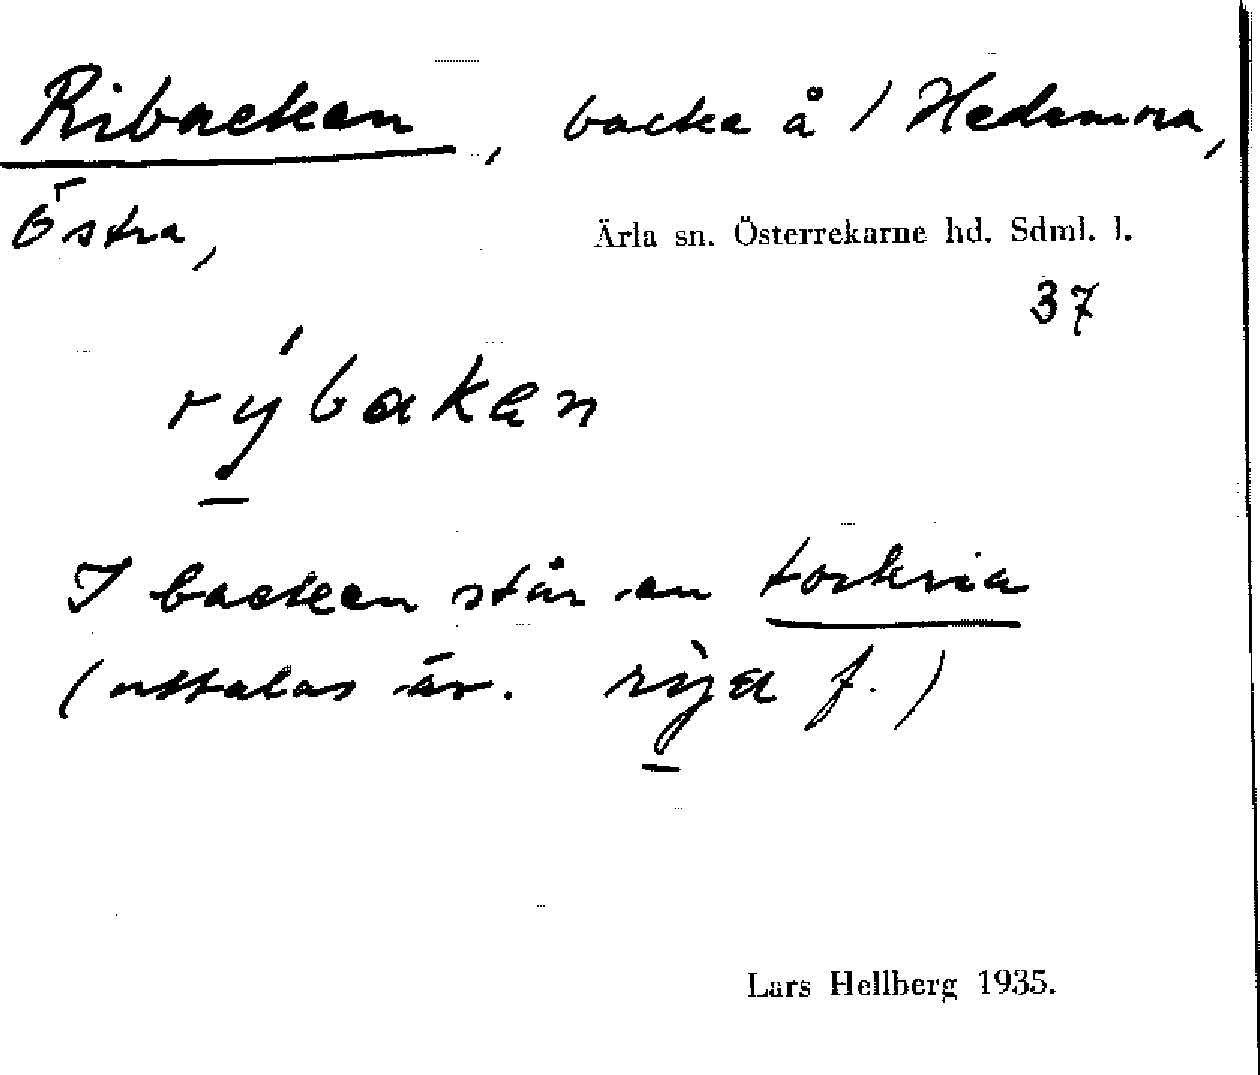 Ribacken, backe å / Hedemora,
Östra,
Ärla sn. Österrekarne hd. Sdml. l.
37
rýbakan
I backen står en torkria
(uttalas äv. rỳja f.)
Lars Hellberg 1935.